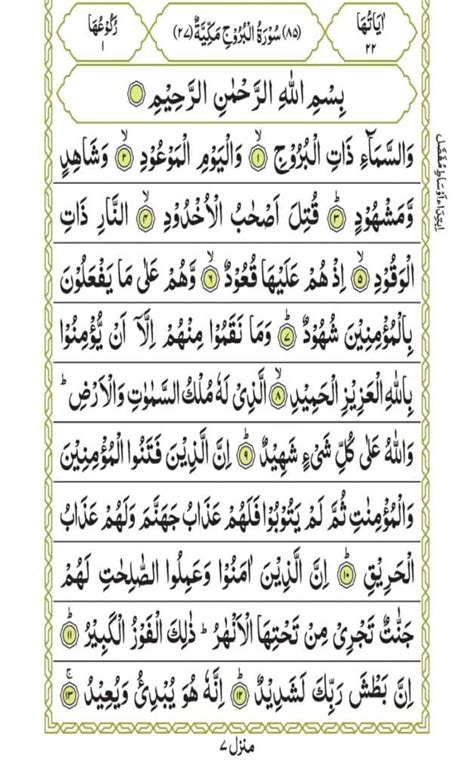 اٰيَاتُهَا ٢٢
(٨٥) سُوْرَةُ الْبُرُوْجِ مَكِّيَّةٌ (٢٧)
رُكُوْعُهَا ١
بِسْمِ اللّٰهِ الرَّحْمٰنِ الرَّحِيْمِ
وَالسَّمَآءِ ذَاتِ الْبُرُوْجِ ۙ﴿١﴾ وَالْيَوْمِ الْمَوْعُوْدِ ۙ﴿٢﴾ وَشَاهِدٍ
وَّمَشْهُوْدٍ ؕ﴿٣﴾ قُتِلَ اَصْحٰبُ الْاُخْدُوْدِ ۙ﴿٤﴾ النَّارِ ذَاتِ
الْوَقُوْدِ ۙ﴿٥﴾ اِذْ هُمْ عَلَيْهَا قُعُوْدٌ ۙ﴿٦﴾ وَّهُمْ عَلٰى مَا يَفْعَلُوْنَ
بِالْمُؤْمِنِيْنَ شُهُوْدٌ ؕ﴿٧﴾ وَمَا نَقَمُوْا مِنْهُمْ اِلَّاۤ اَنْ يُّؤْمِنُوْا
بِاللّٰهِ الْعَزِيْزِ الْحَمِيْدِ ۙ﴿٨﴾ الَّذِيْ لَهٗ مُلْكُ السَّمٰوٰتِ وَالْاَرْضِ ؕ
وَاللّٰهُ عَلٰى كُلِّ شَيْءٍ شَهِيْدٌ ؕ﴿٩﴾ اِنَّ الَّذِيْنَ فَتَنُوا الْمُؤْمِنِيْنَ
وَالْمُؤْمِنٰتِ ثُمَّ لَمْ يَتُوْبُوْا فَلَهُمْ عَذَابُ جَهَنَّمَ وَلَهُمْ عَذَابُ
الْحَرِيْقِ ؕ﴿١٠﴾ اِنَّ الَّذِيْنَ اٰمَنُوْا وَعَمِلُوا الصّٰلِحٰتِ لَهُمْ
جَنّٰتٌ تَجْرِيْ مِنْ تَحْتِهَا الْاَنْهٰرُ ؕ ذٰلِكَ الْفَوْزُ الْكَبِيْرُ ؕ﴿١١﴾
اِنَّ بَطْشَ رَبِّكَ لَشَدِيْدٌ ؕ﴿١٢﴾ اِنَّهٗ هُوَ يُبْدِئُ وَيُعِيْدُ ۚ﴿١٣﴾
اِبْتِدَاء اَوْسَاطِ مُفَصَّل
منزل ٧